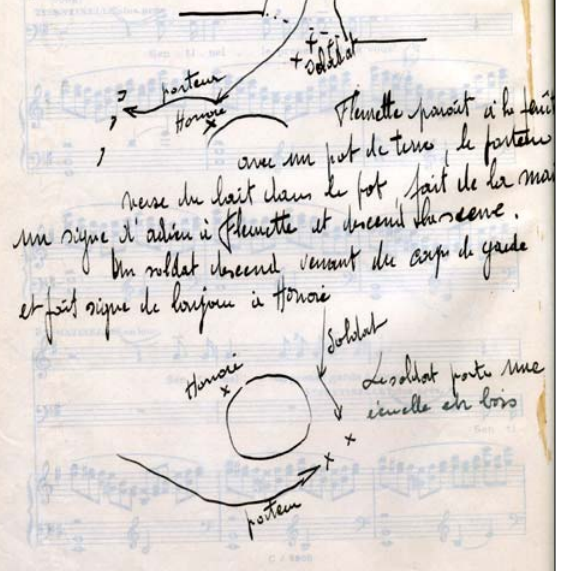 Soldat
porteur
Honoré
Fleurette paraît à la fenêt
avec un pot de terre, le porteur
verse du lait dans le pot, fait de la mai
un signe d'adieu à Fleurette et descend la scene.
Un soldat descend venant du corps de garde
et fait signe de bonjour à Honoré
Soldat
Honoré
Le soldat porte une
écuelle en bois
porteur